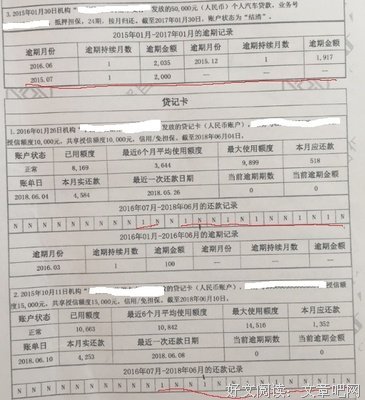 3. 2015年01月30日机构“ ”发放的50,000元（人民币）个人汽车贷款，业务号
，抵押担保，24期，按月归还，截至2017年01月30日，账户状态为“结清”。
2015年01月-2017年01月的逾期记录
逾期月份 逾期持续月数 逾期金额 逾期月份 逾期持续月数 逾期金额
2016.06 1 2,035 2015.12 1 1,917
2015.07 1 2,000
贷记卡
1. 2016年01月26日机构“ ”发放的贷记卡（人民币账户），
授信额度10,000元，共享授信额度10,000元，信用/免担保，截至2018年06月04日，
账户状态 已用额度 最近6个月平均使用额度 最大使用额度 本月应还款
正常 8,169 3,644 9,899 518
账单日 本月实还款 最近一次还款日期 当前逾期期数 当前逾期金额
2018.06.04 4,584 2018.05.26 0 0
2016年07月-2018年06月的还款记录
2016年01月-2016年06月的逾期记录
逾期月份 逾期持续月数 逾期金额 逾期月份 逾期持续月数 逾期金额
2016.03 1 100
2. 2015年10月11日机构“ 发放的贷记卡（人民币账户）， 授信额
度15,000元，共享授信额度15,000元，信用/免担保，截至2018年06月10日，
账户状态 已用额度 最近6个月平均使用额度 最大使用额度 本月应还款
正常 10,663 10,842 14,516 1,352
账单日 本月实还款 最近一次还款日期 当前逾期期数 当前逾期金额
2018.06.10 4,253 2018.06.08 0 0
2016年07月-2018年06月的还款记录
好文阅读：文章吧网